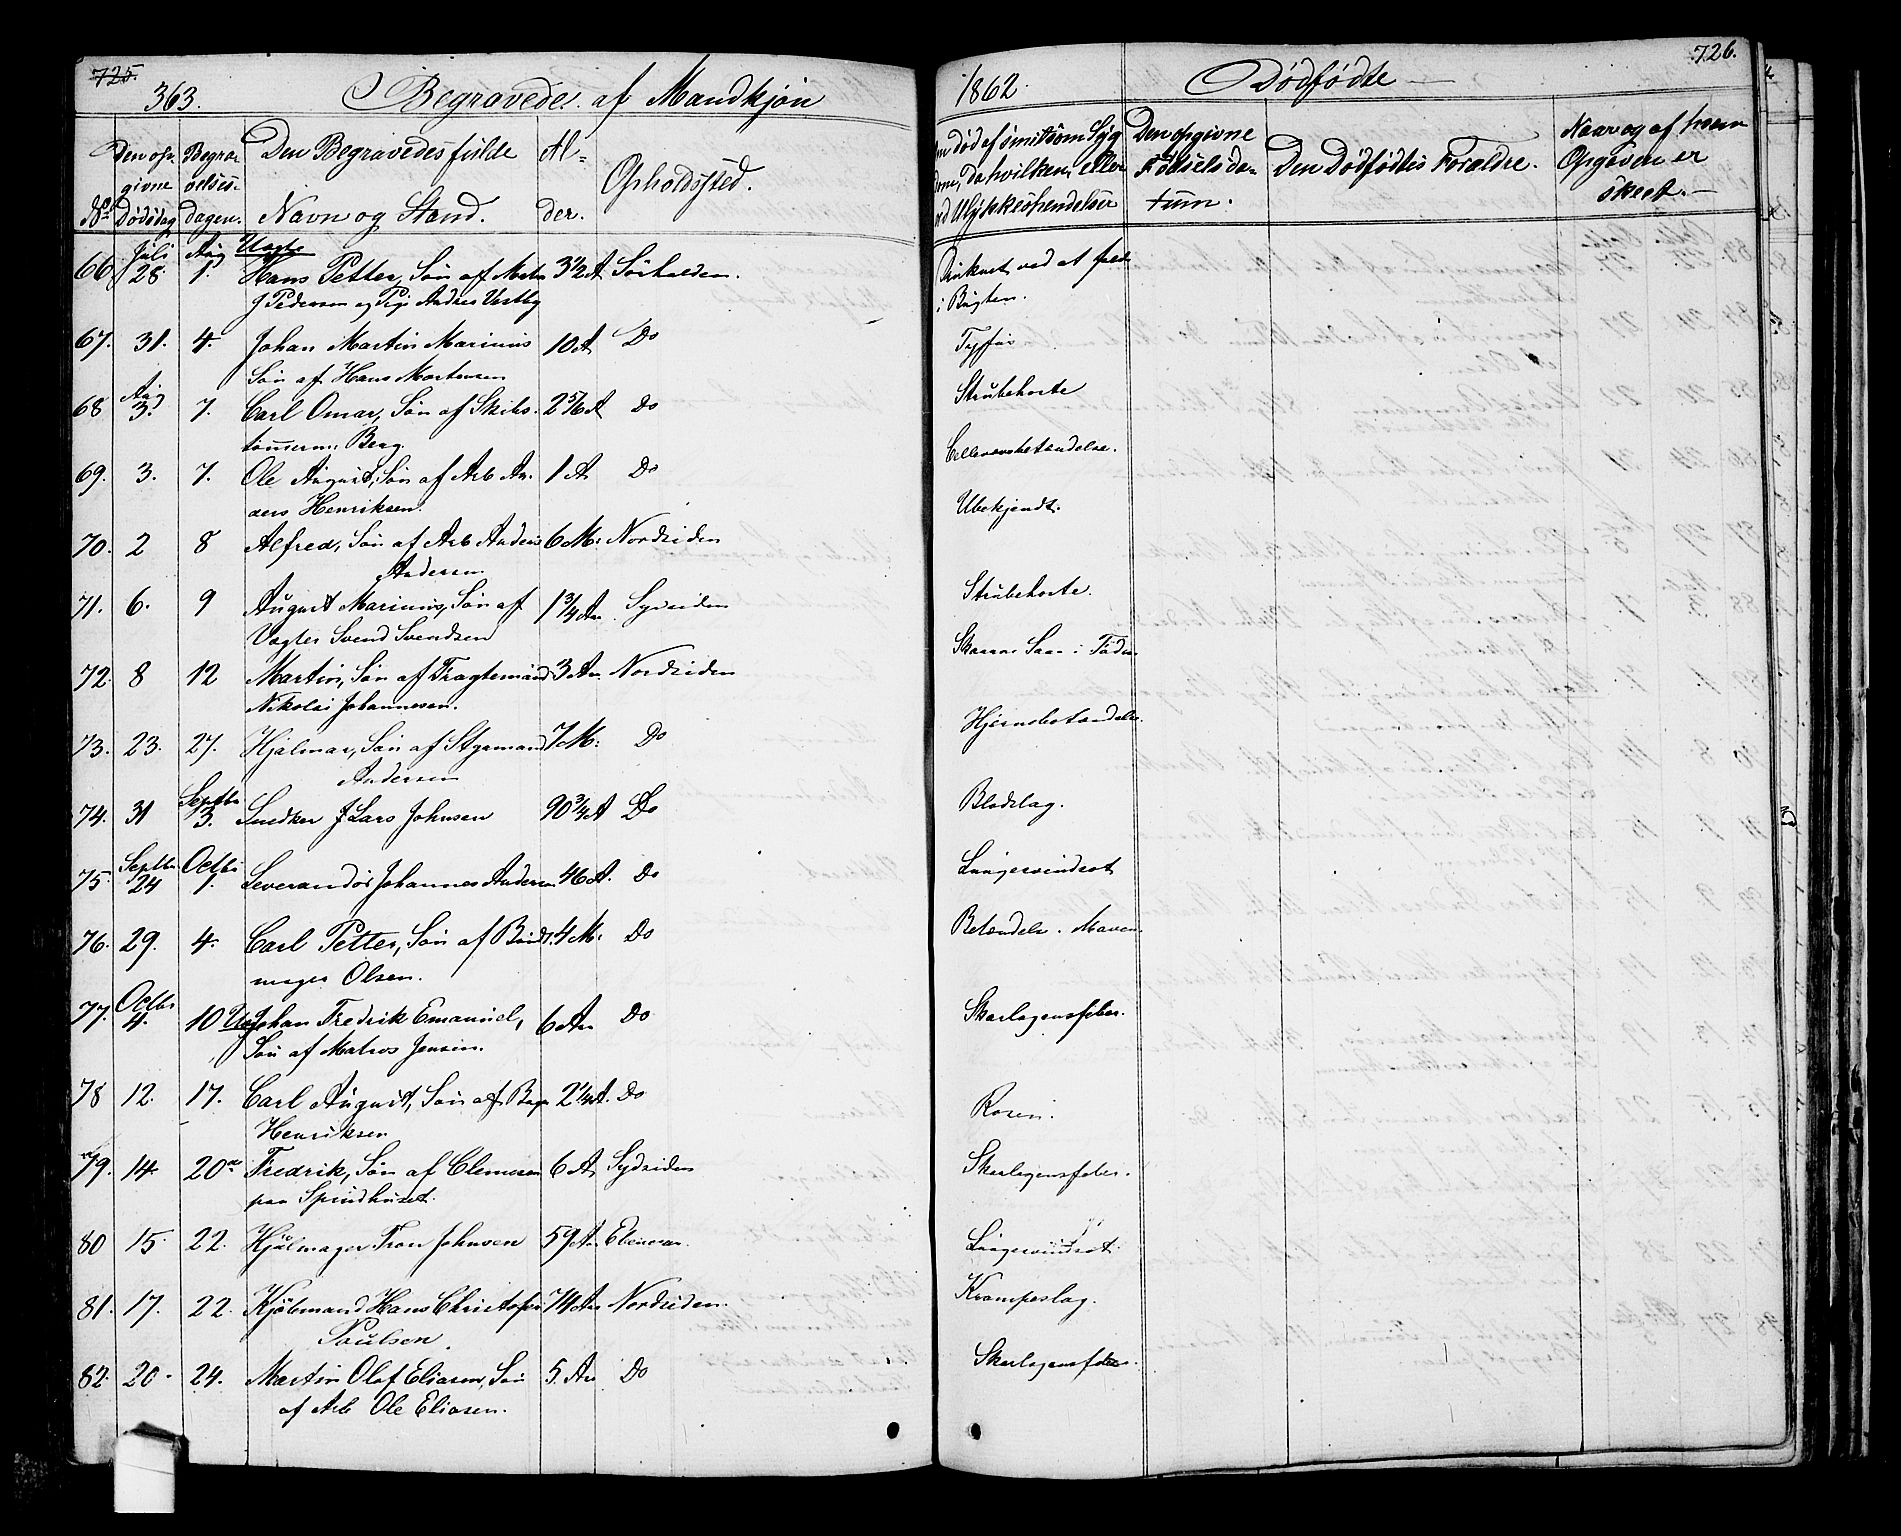 725.
363.
Begravede af Mandkjøn
No
Den op-
givne
Dødsdag
Begra-
velses-
dagen.
Den Begravedes fulde
Navn og Stand.
Al-
der.
Opholdssted.
Juli Aug Uægte
66. 28. 1. Hans Petter, Søn af
J Pedersen og Pige Andrea Vestby
3 1/2 A Sørhalden.
67. 31. 4. Johan Martin Marinius 10 A Do
Søn af Hans Mortensen
Aug
68 3. 7. Carl Omar, Søn af Skibs- 2 5/6 A Do
tømmerm: Berg.
69. 3. 7. Ole August, Søn af Arb An- 1 A Do
ders Henriksen.
70. 2 8 Alfred, Søn af Arb Anders 6 M: Nordsiden
Andersen
71. 6. 9 August Marinius, Søn af 1 3/4 Aar Sydsiden
Vægter Svend Svendsen
72. 8 12 Martin, Søn af Fragtemand 3 Aar Nordsiden
Nikolai Johannesen.
73. 23. 27. Hjalmar, Søn af Styrmand 7 M: Do
Andersen
Septbr
74. 31 3. Snedker J Lars Johnsen 90 3/4 A Do
Septbr Octbr
75. 24 1. Leverandør Johannes Andersen 46 A. Do
76. 29. 4. Carl Petter, Søn af Bundt- 4 M: Do
mager Olsen.
Octbr
77. 4. 10 Johan Fredrik Emanuel, 6 Aar Do
Søn af Matros Jensen.
78 12. 17. Carl August, Søn af Bager 2 1/4 A. Do
Henriksen
79. 14. 20 Fredrik, Søn af Clemesen 6 A Sydsiden
paa Spindhuset.
80 15. 22. Hjulmager Tron Johnsen 59 Aar
81. 17. 22. Kjøbmand Hans Christopher 74 Aar Nordsiden.
Poulsen.
82. 20. 24. Martin Olaf Eliasen, Søn 5. Aar Do
af Arb Ole Eliasen.
1862.
Dødfødte
726.
død af smitsom Syg-
dom, da hvilken, eller
ved Ulykkeshændelser
Den opgivne
Fødselsda-
tum.
Den Dødfødtes Forældre.
Naar og af hvem
Opgaven er
skeet.
Druknet ved at falde
i Bugten.
Tyfus
Strubehoste
Ubekjendt.
Strubehoste.
Hjernebetændelse
Blodslag.
Lungesvindsot
Betændelse i Maven.
Skarlagensfeber.
Rosen.
Skarlagensfeber.
Lungesvindsot
Krampeslag.
Skarlagensfeber.